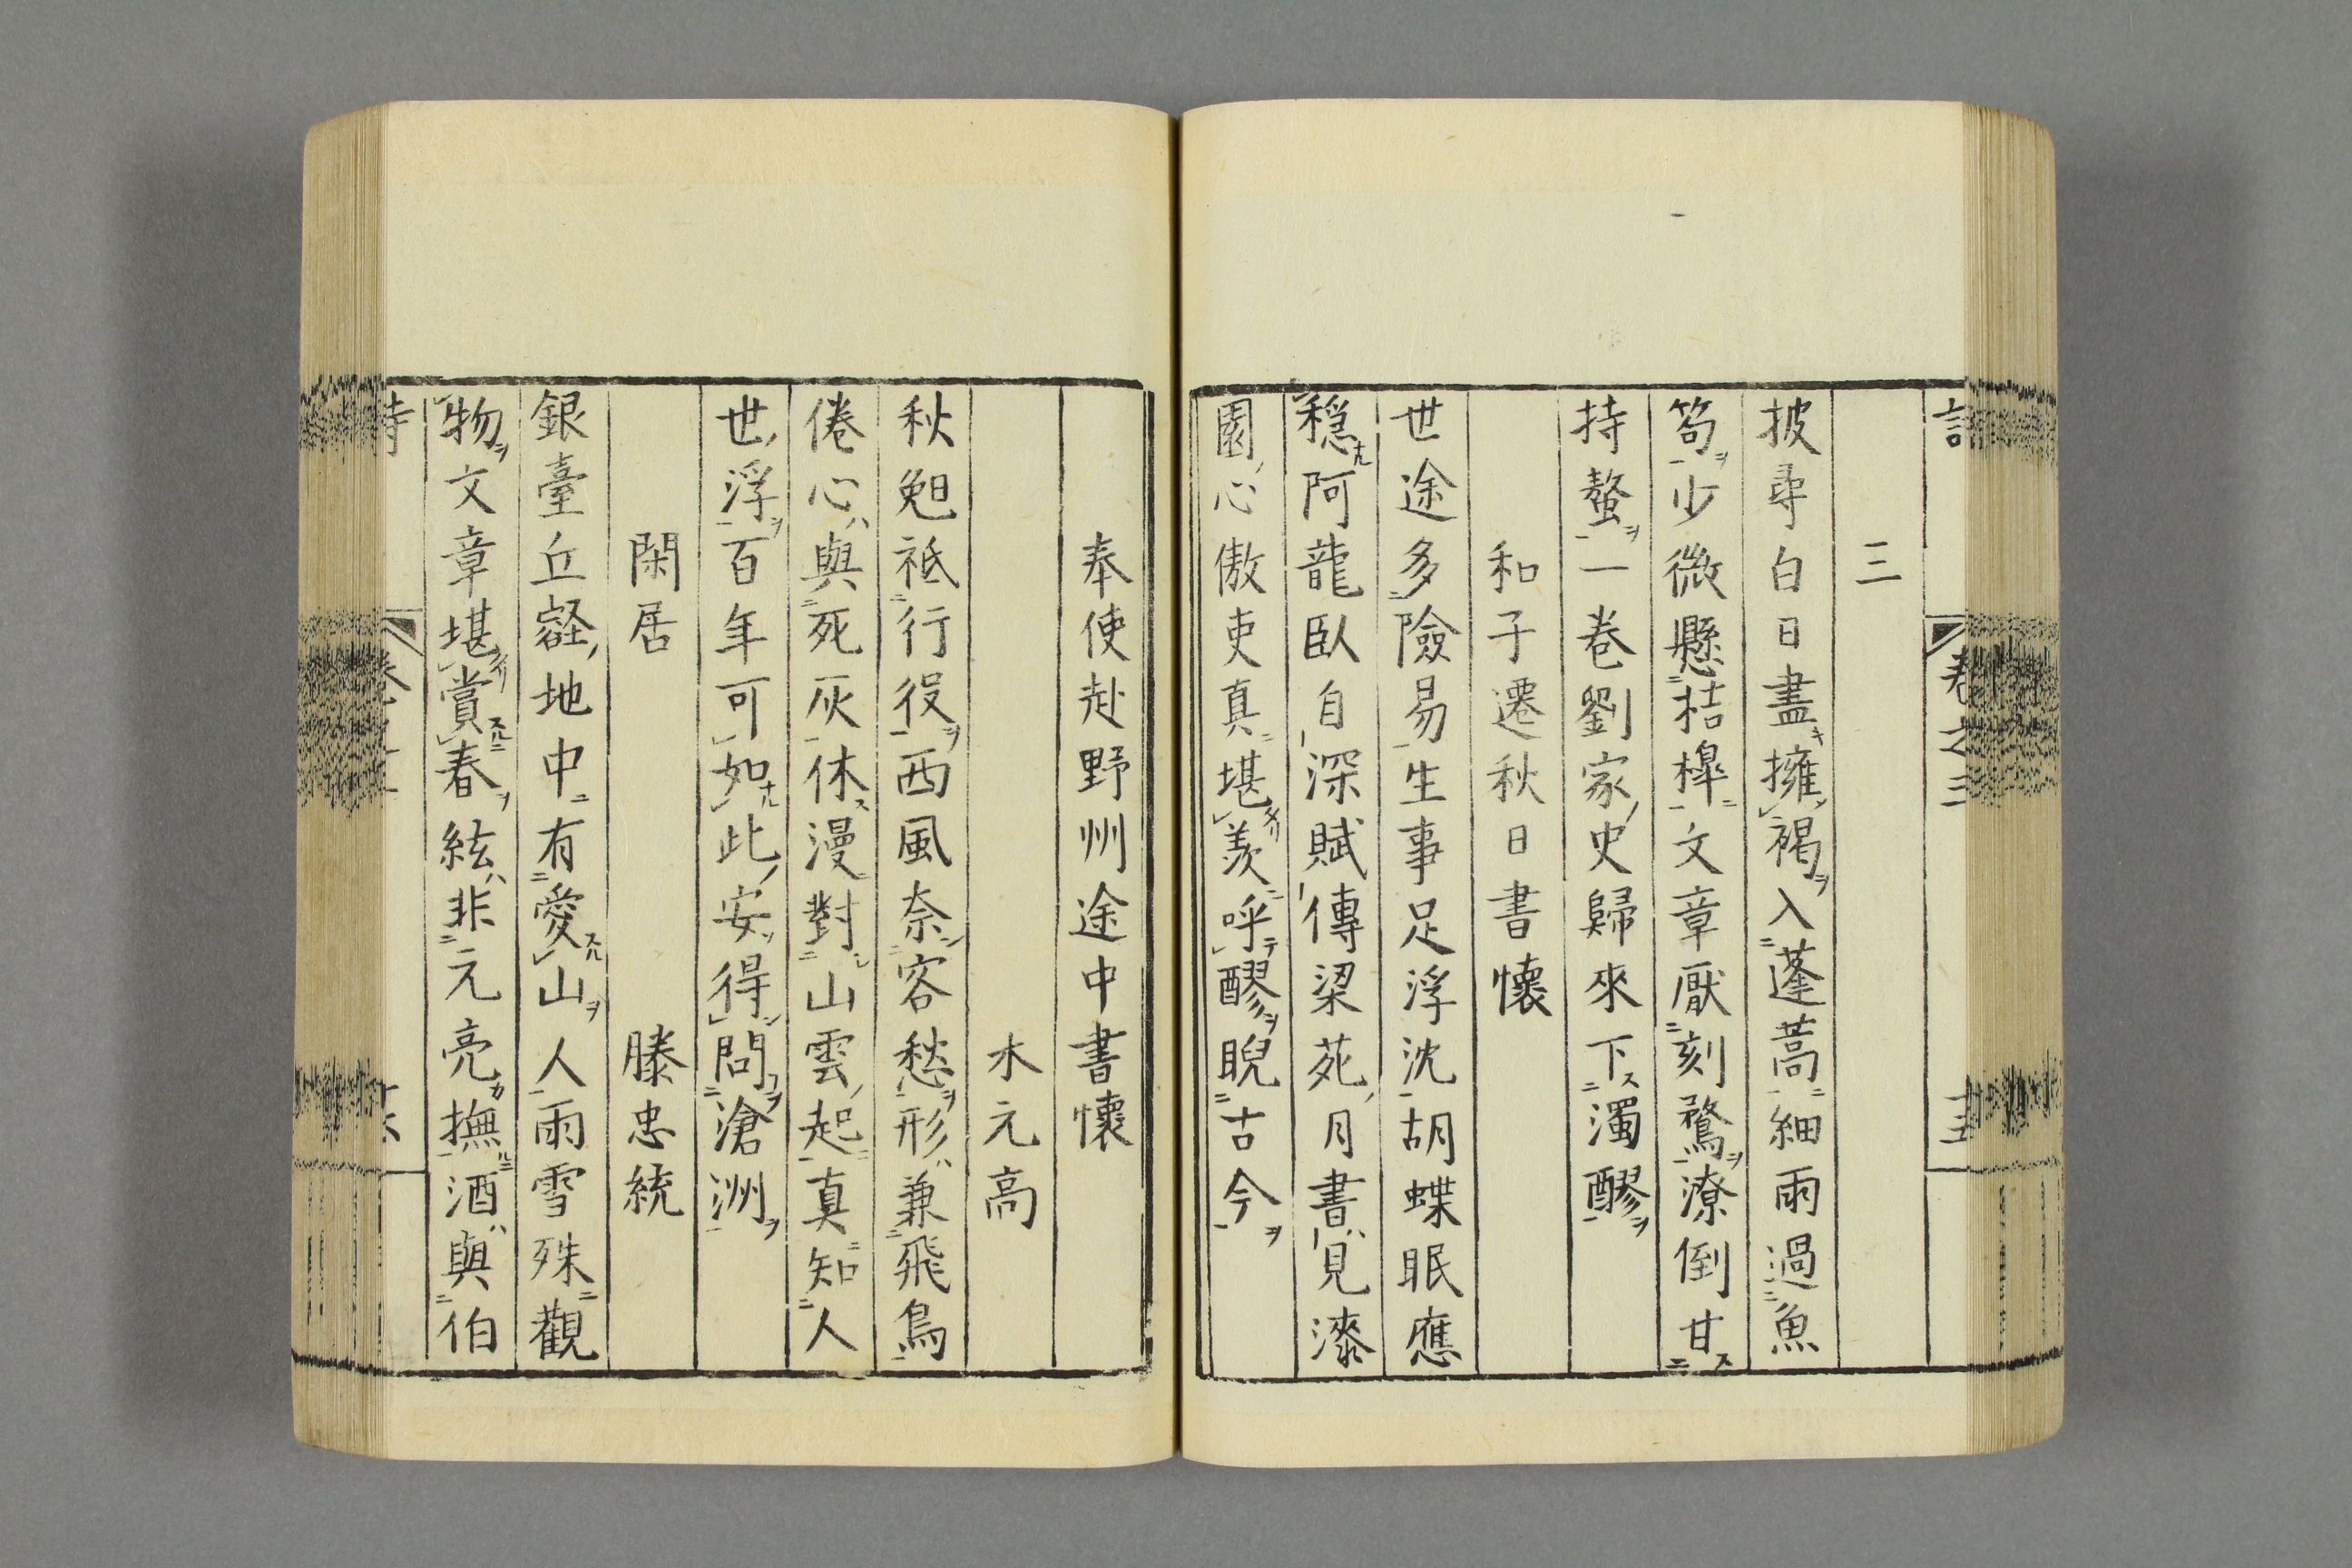 卷之三
三
披尋白日盡擁褐入蓬蒿細雨過魚
笱少微懸桔槹文章厭刻鶩潦倒甘
持螯一卷劉家史歸來下濁醪
和子遷秋日書懷
世途多險易生事足浮沈胡蝶眠應
穏阿龍臥自深賦傳梁苑月書見漆
園心傲吏真堪羨呼醪睨古今
奉使赴野州途中書懷
木元高
秋兔祗行役西風奈客愁形兼飛鳥
倦心與死灰休漫對山雲起真知人
世浮百年可如此安得問滄洲
閑居
滕忠統
銀臺丘壑地中有愛山人雨雪殊觀
物文章堪賞春絃非元亮撫酒與伯